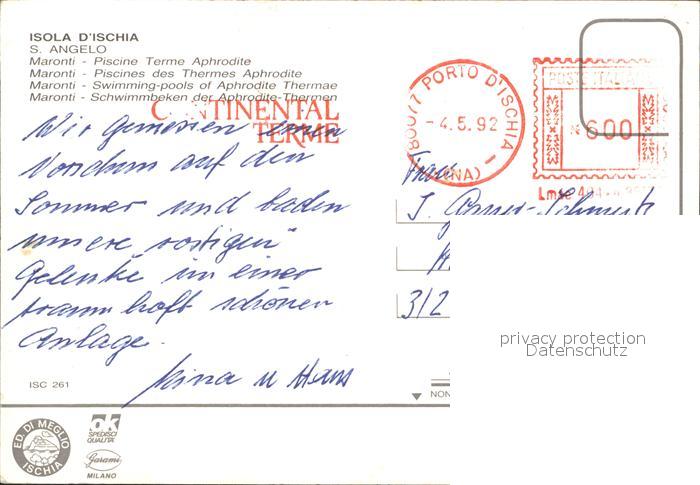 ISOLA D'ISCHIA
S. ANGELO
Maronti - Piscine Terme Aphrodite
Maronti - Piscines des Thermes Aphrodite
Maronti - Swimming-pools of Aphrodite Thermae
Maronti - Schwimmbecken der Aphrodite-Thermen
CONTINENTAL
TERME
80077 PORTO D'ISCHIA
- 4. 5. 92
(NA)
POSTE ITALIANE
N 600
Wir geniessen einen
Vorschum auf den
Sommer und baden
unsere "rostigen"
Gelenke in einer
traumhaft schönen
Anlage.
Nina u Hans
Frau
J.
312
privacy protection
Datenschutz
ISC 261
NON
ED. DI MEGLIO
ISCHIA
ok
SPEDISCI
QUALITA'
Garami
MILANO